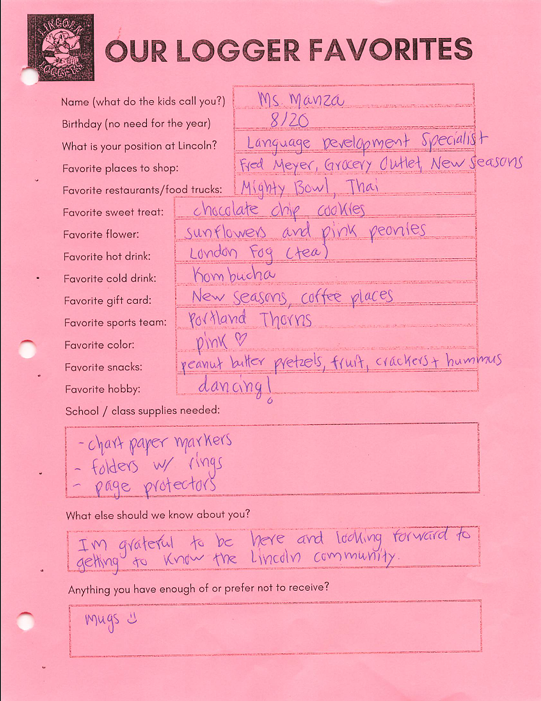 LINCOLN
LOGGERS
OUR LOGGER FAVORITES
Name (what do the kids call you?) Ms. Manza
Birthday (no need for the year) 8/20
What is your position at Lincoln? Language Development Specialist
Favorite places to shop: Fred Meyer, Grocery Outlet, New Seasons
Favorite restaurants/food trucks: Mighty Bowl, Thai
Favorite sweet treat: chocolate chip cookies
Favorite flower: sunflowers and pink peonies
Favorite hot drink: London Fog (tea)
Favorite cold drink: Kombucha
Favorite gift card: New Seasons, coffee places
Favorite sports team: Portland Thorns
Favorite color: pink ♡
Favorite snacks: peanut butter pretzels, fruit, crackers + hummus
Favorite hobby: dancing!
School / class supplies needed:
- chart paper markers
- folders w/ rings
- page protectors
What else should we know about you?
I'm grateful to be here and looking forward to
getting to know the Lincoln community.
Anything you have enough of or prefer not to receive?
mugs ☺